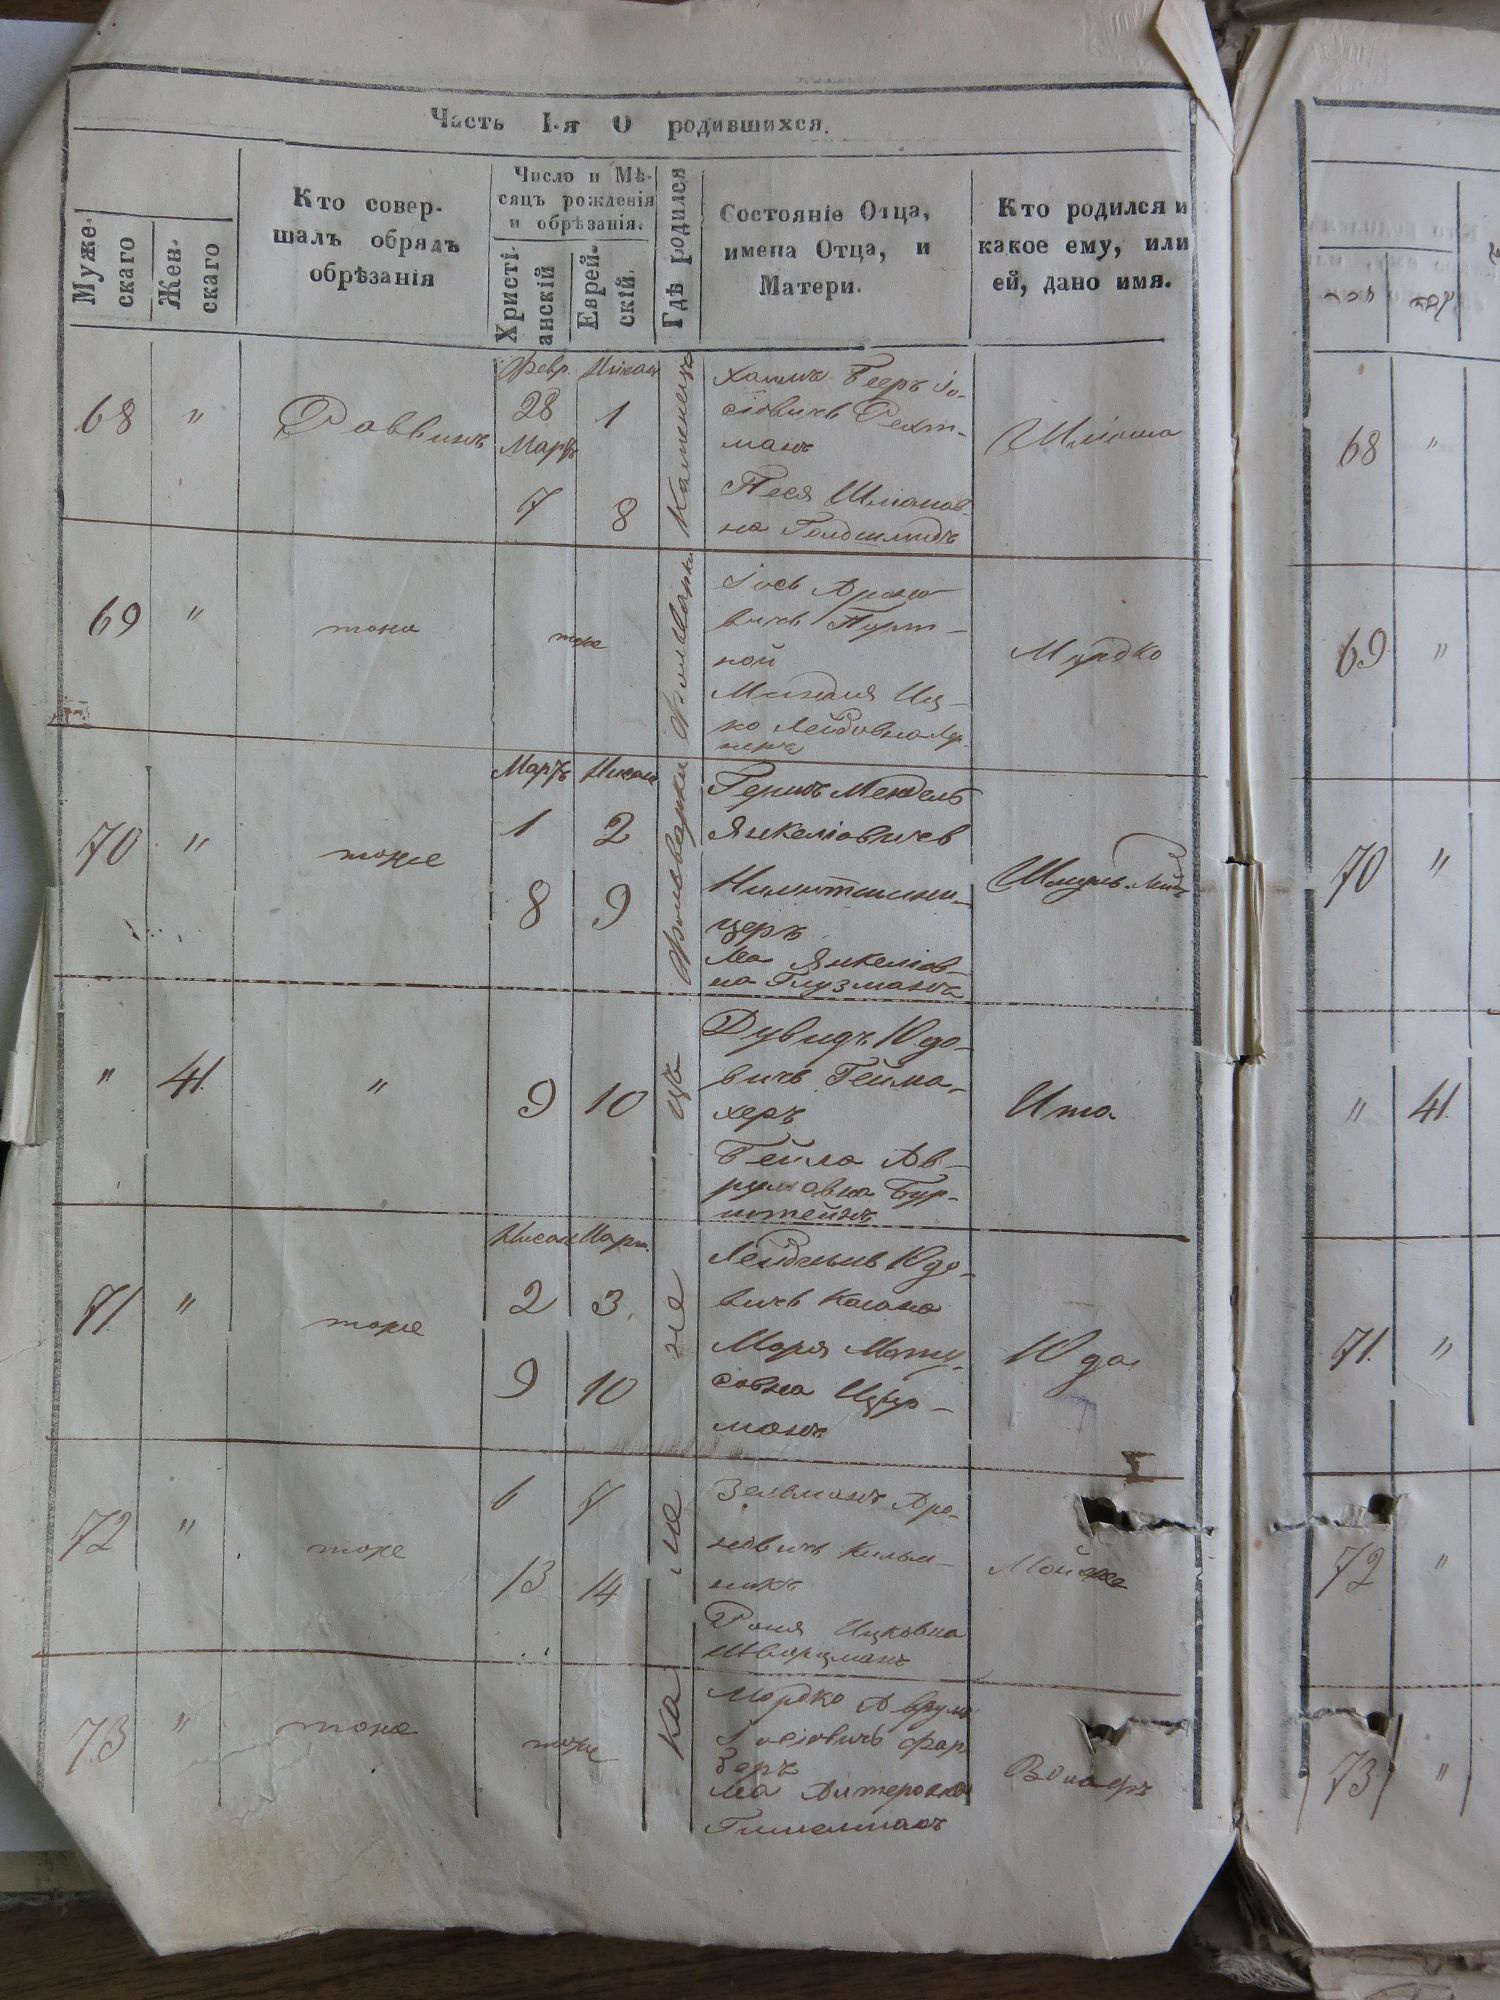 Часть I-я О родившихся.
Муже-
скаго
Жен-
скаго
Кто совер-
шалъ обрядъ
обрѣзанія
Число и Мѣ-
сяцъ рожденія
и обрѣзанія.
Христі-
анскій
Еврей-
скій.
Гдѣ родился
Состояніе Отца,
имена Отца, и
Матери.
Кто родился и
какое ему, или
ей, дано имя.
68
"
Раввинъ
Февр.
28
Мартъ
7
Нисан
1
8
Каменецъ
Хаимъ Бееръ Іо-
сіовичъ Рехт-
манъ
Песя Шліомов-
на Голдшмидъ
Шліома
69
"
тоже
тоже
Фольварки
Іось Ароно-
вичъ Порт-
ной
Миндля Иц-
ко Лейбовна
Мордко
70
"
тоже
Мартъ
1
8
Нисан
2
9
Фольварки
Гершъ Мендель
Янкеліовичъ
церъ
Лея Янкеліов-
на Глузманъ
Шмуль Лейб
"
41.
"
9
10
цъ
Дувидъ Юдо-
вичъ Гейма-
херъ
Бейла Ав-
румовна Бур-
штейнъ
Ита
71.
"
тоже
Нисан
2
9
Март.
3.
10
не
Юдо-
вичъ Когано
Маря Мату-
совна Цукр-
манъ
Юда
72
"
тоже
6
13
7
14
ме
Зельманъ Аро-
новичъ Кильм-
никъ
Рохля Ицковна
Шварцманъ
Мойше
73
"
тоже
тоже
Ка
Мордко Аврумъ
Іосіовичъ Фар-
беръ
Алтеровна
Гительманъ
68
"
69.
"
70
"
"
41.
71.
"
72
"
73.
"